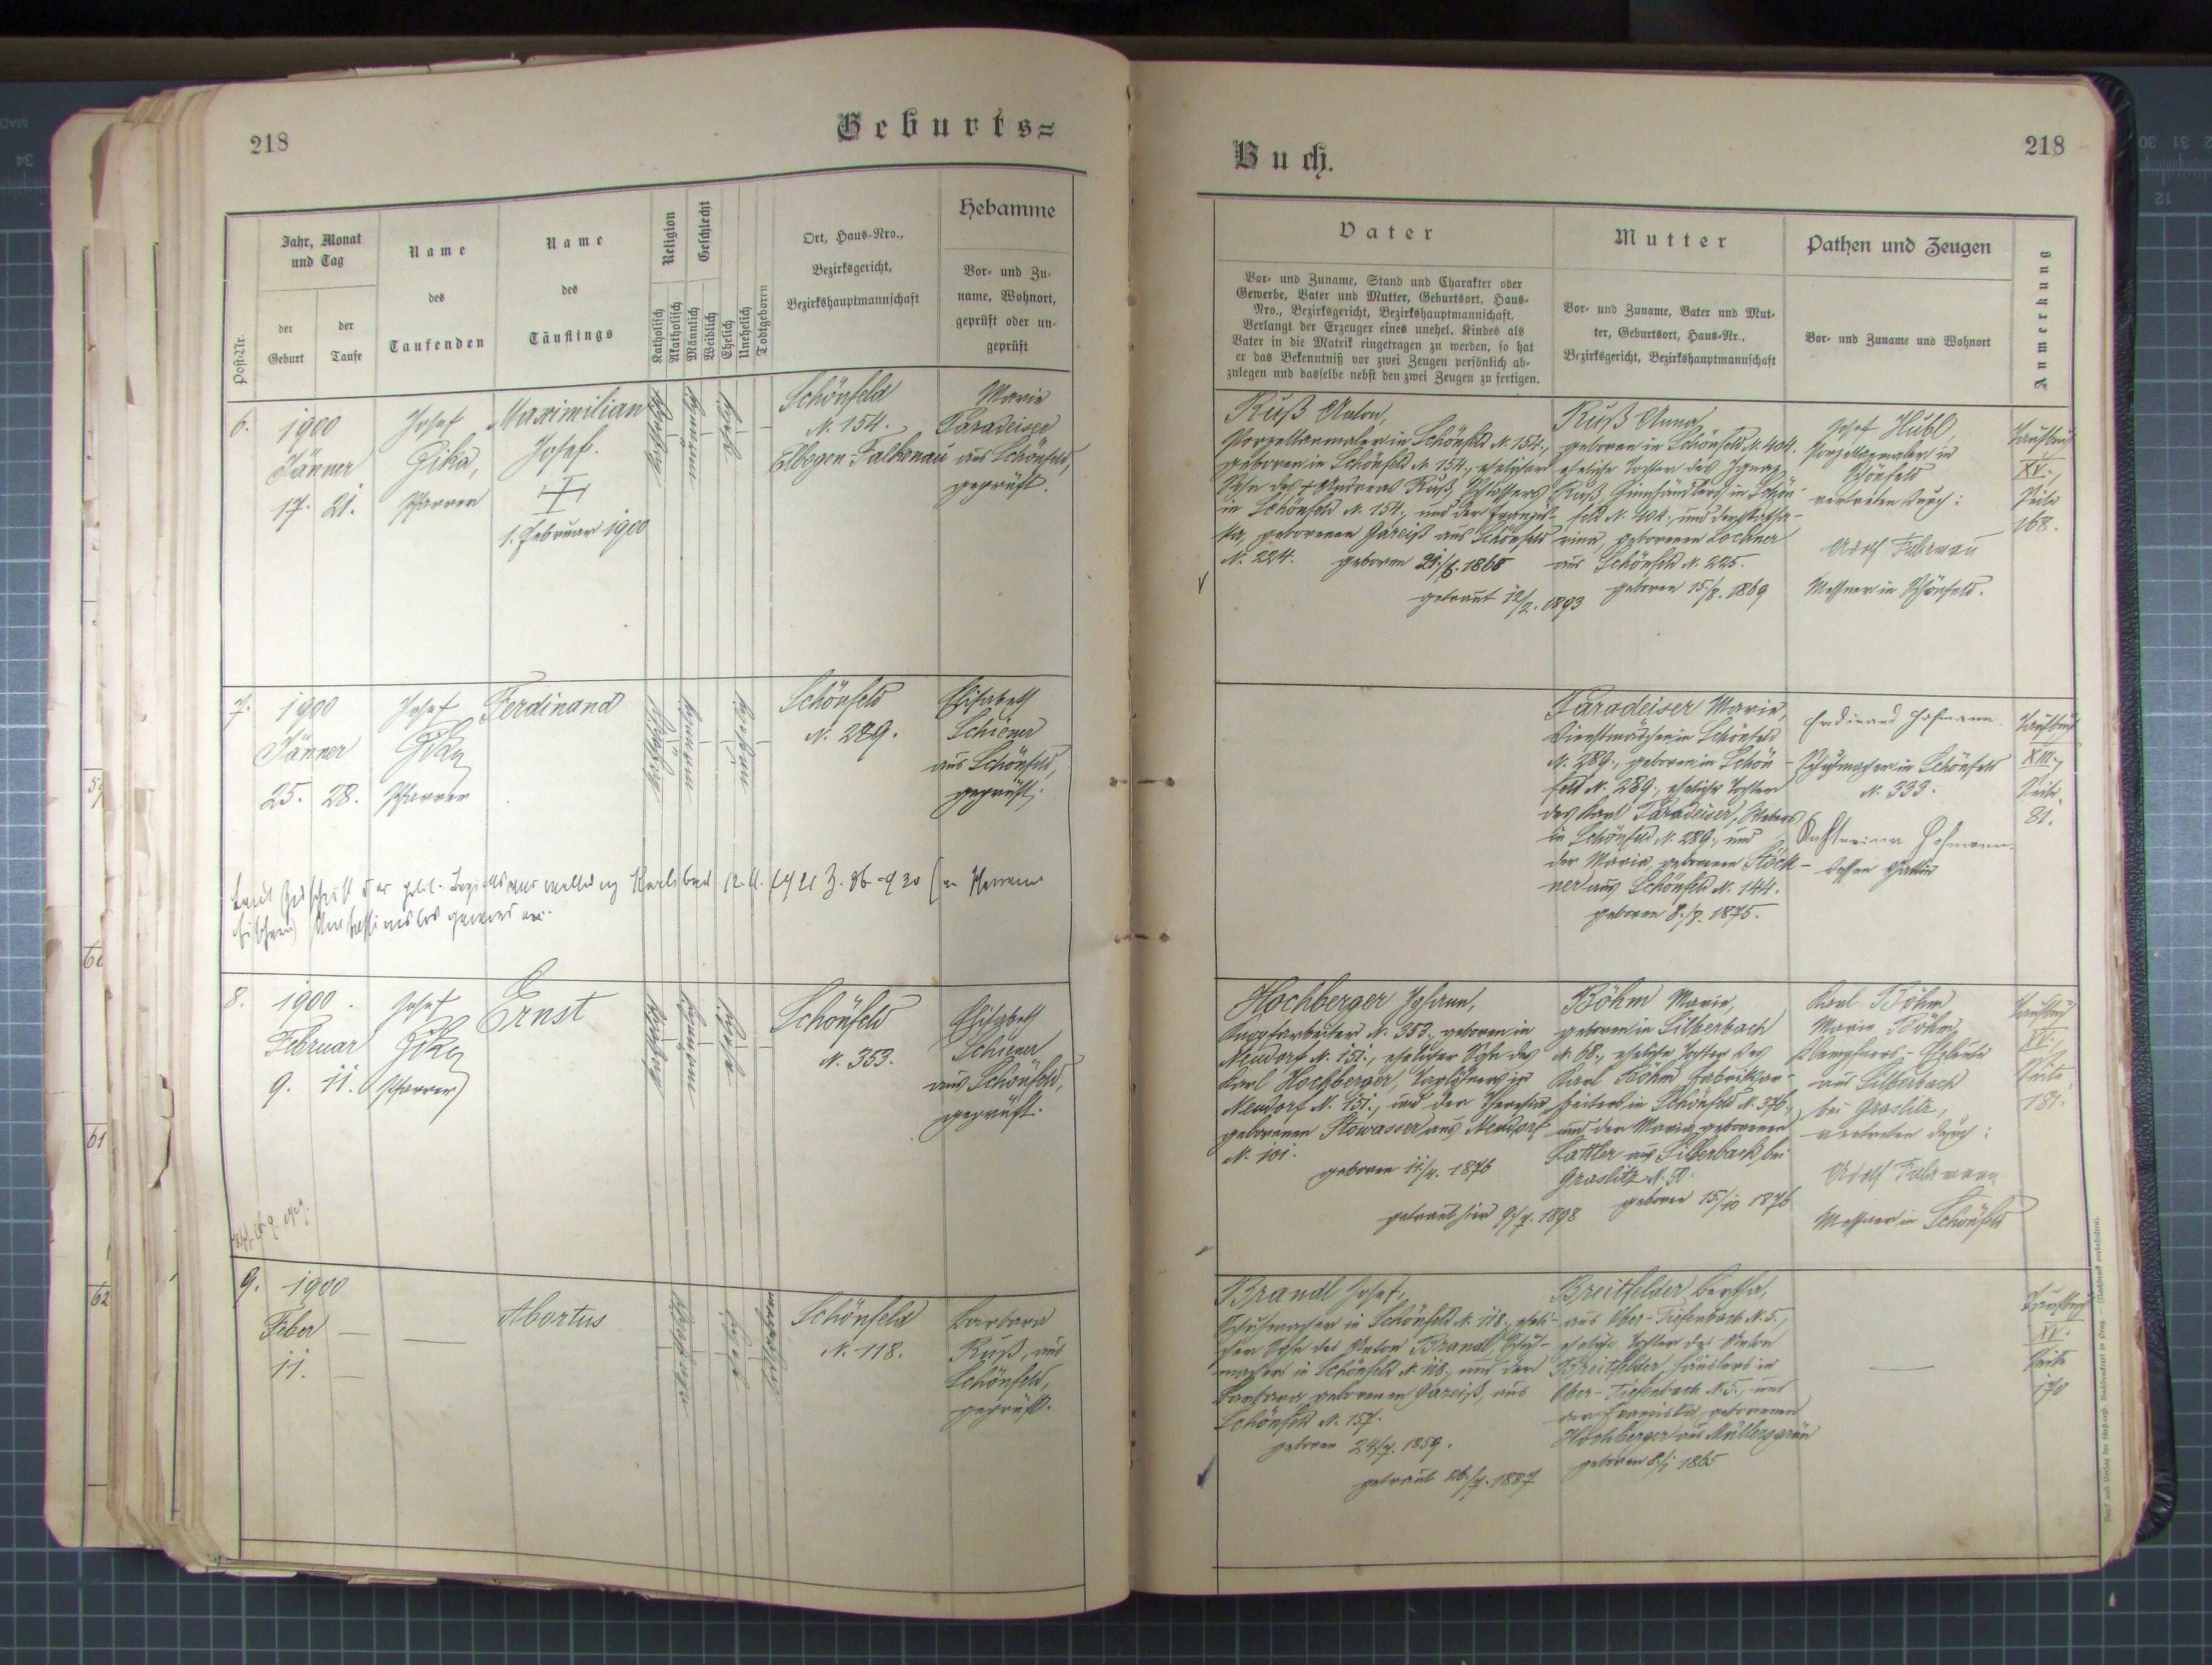 218
Geburts=
Post-Nr.
Jahr, Monat
und Tag
der
Geburt
der
Taufe
Name
des
Taufenden
Name
des
Täuflings
Religion
Katholisch
Akatholisch
Geschlecht
Männlich
Weiblich
Ehelich
Unehelich
Todtgeboren
Ort, Haus-Nro.,
Bezirksgericht,
Bezirkshauptmannschaft
Hebamme
Vor- und Zu-
name, Wohnort,
geprüft oder un-
geprüft
6.
1900
Jänner
17. 21.
Josef
Gika,
Pfarrer
Maximilian
Josef.
1. Februar 1900
Schönfeld
N. 154.
Elbogen Falkenau
Marie
Paradeiser
aus Schönfeld,
geprüft.
7.
1900
Jänner
25. 28.
Josef
Gika
Pfarrer
Ferdinand
Schönfeld
N. 289.
Elisabeth
Schiener
aus Schönfeld,
geprüft.
Laut Zuschrift der polit. Bezirksverwaltung Karlsbad
8.
1900.
Februar
9. 11.
Josef
Gika
Pfarrer
Ernst
Schönfeld
N. 353.
Elisabeth
Schiener
aus Schönfeld,
geprüft.
9.
1900
Feber
11.
Abortus
Schönfeld
N. 118.
Barbara
Ruß, aus
Schönfeld,
geprüft.
Buch.
218
Vater
Vor- und Zuname, Stand und Charakter oder
Gewerbe, Vater und Mutter, Geburtsort, Haus-
Nro., Bezirksgericht, Bezirkshauptmannschaft.
Verlangt der Erzeuger eines unehel. Kindes als
Vater in die Matrik eingetragen zu werden, so hat
er das Bekenntniß vor zwei Zeugen persönlich ab-
zulegen und dasselbe nebst den zwei Zeugen zu fertigen.
Mutter
Vor- und Zuname, Vater und Mut-
ter, Geburtsort, Haus-Nr.,
Bezirksgericht, Bezirkshauptmannschaft
Pathen und Zeugen
Vor- und Zuname und Wohnort
Anmerkung
Ruß Anton,
Porzellanmaler in Schönfeld N. 154.,
geboren in Schönfeld N. 154., ehelicher
Sohn des + Andreas Ruß, Schlossers
in Schönfeld N. 154., und der Franzis-
ka, geborenen Gareiß aus Schönfeld
N. 224. geboren
getraut 12/2. 1893
Ruß Anna
geboren in Schönfeld N. 404.
eheliche Tochter des Ignaz
Ruß, Zinnhändlers in Schön-
feld N. 404., und der Katha-
rina, geborenen Lochner
aus Schönfeld N. 225.
geboren 15./8. 1869
Josef Hubl,
Porzellanmaler in
Schönfeld
vertreten durch:
Adolf Fuhrmann
Messner in Schönfeld.
Taufbuch
XV.,
Seite
168.
Paradeiser Marie,
Dienstmädchen in Schönfeld
N. 289., geboren in Schön-
feld N. 289., eheliche Tochter
des Karl Paradeiser, Webers
in Schönfeld N. 289., und
der Maria geborenen Stöck-
ner aus Schönfeld N. 144.
geboren 8./8. 1875.
Ferdinand Hofmann.
Schuhmacher in Schönfeld
N. 333.
Katharina Hofmann.
dessen Gattin
Taufbuch
XIII.,
Seite
81.
Hochberger Johann,
Knopfarbeiter N. 353, geboren in
Neudorf N. 151., ehelicher Sohn des
Karl Hochberger, Taglöhners in
Neudorf N. 151., und der Theresia
geborenen Stowasser aus Neudorf
N. 101.
geboren 11/4. 1876
getraut hier 9/7. 1898
Böhm Marie,
geboren in Silberbach
N. 68., eheliche Tochter des
Karl Böhm Fabriksar-
beiters in Schönfeld N. 376.,
und der Maria, geborenen
Sattler aus Silberbach bei
Graslitz N. 50.
geboren 15/10 1876
Karl Böhm
Marie Böhm,
Klempfners-Eheleute
aus Silberbach
bei Graslitz,
vertreten durch:
Adolf Fuhrmann
Messner in Schönfeld
Taufbuch
XV.,
Seite
181.
Brandl Josef,
Schuhmacher in Schönfeld N. 118., eheli-
cher Sohn des Anton Brandl, Schuh-
machers in Schönfeld N. 118., und der
Barbara geborenen Gareiß, aus
Schönfeld N. 157.
geboren 24/7. 1859.
getraut 26./7. 1887
Breitfelder Bertha,
aus Ober-Tiefenbach N. 5.,
eheliche Tochter des Anton
Breitfelder, Häuslers in
Ober-Tiefenbach N. 5., und
der Franziska geborenen
Hochberger aus Müllersgrün
geboren 1865
Taufbuch
XV.
Seite
170